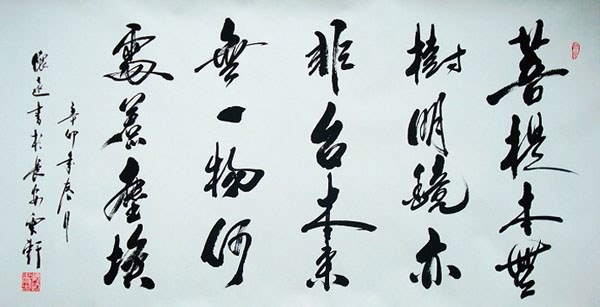 菩提本無
樹明鏡亦
非台本來
無一物何
處惹塵埃
辛卯年春月
書於長安雲軒